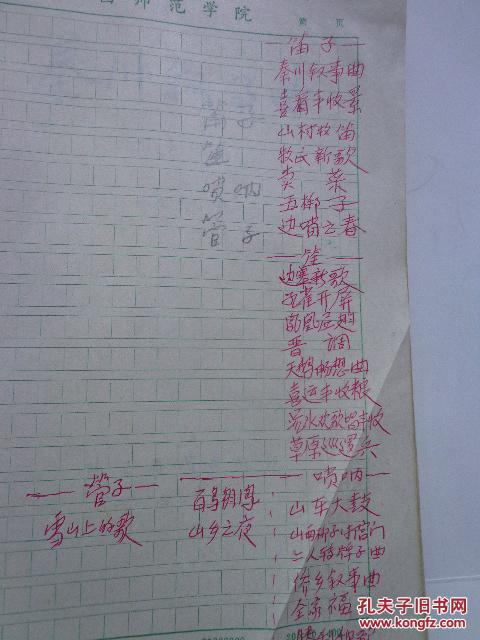 师范学院
第 页
笛子
秦川叙事曲
喜看丰收景
山村牧笛
牧民新歌
卖菜
五梆子
边哨之春
笛子
笙
唢呐
管子
笙
边塞新歌
孔雀开屏
凤凰展翅
晋调
天鹅畅想曲
喜运丰收粮
草原巡逻兵
唢呐
山东大鼓
二人转牌子曲
侨乡叙事曲
全家福
百鸟朝凤
山乡之夜
管子
雪山上的歌
孔夫子旧书网
www.kongfz.com